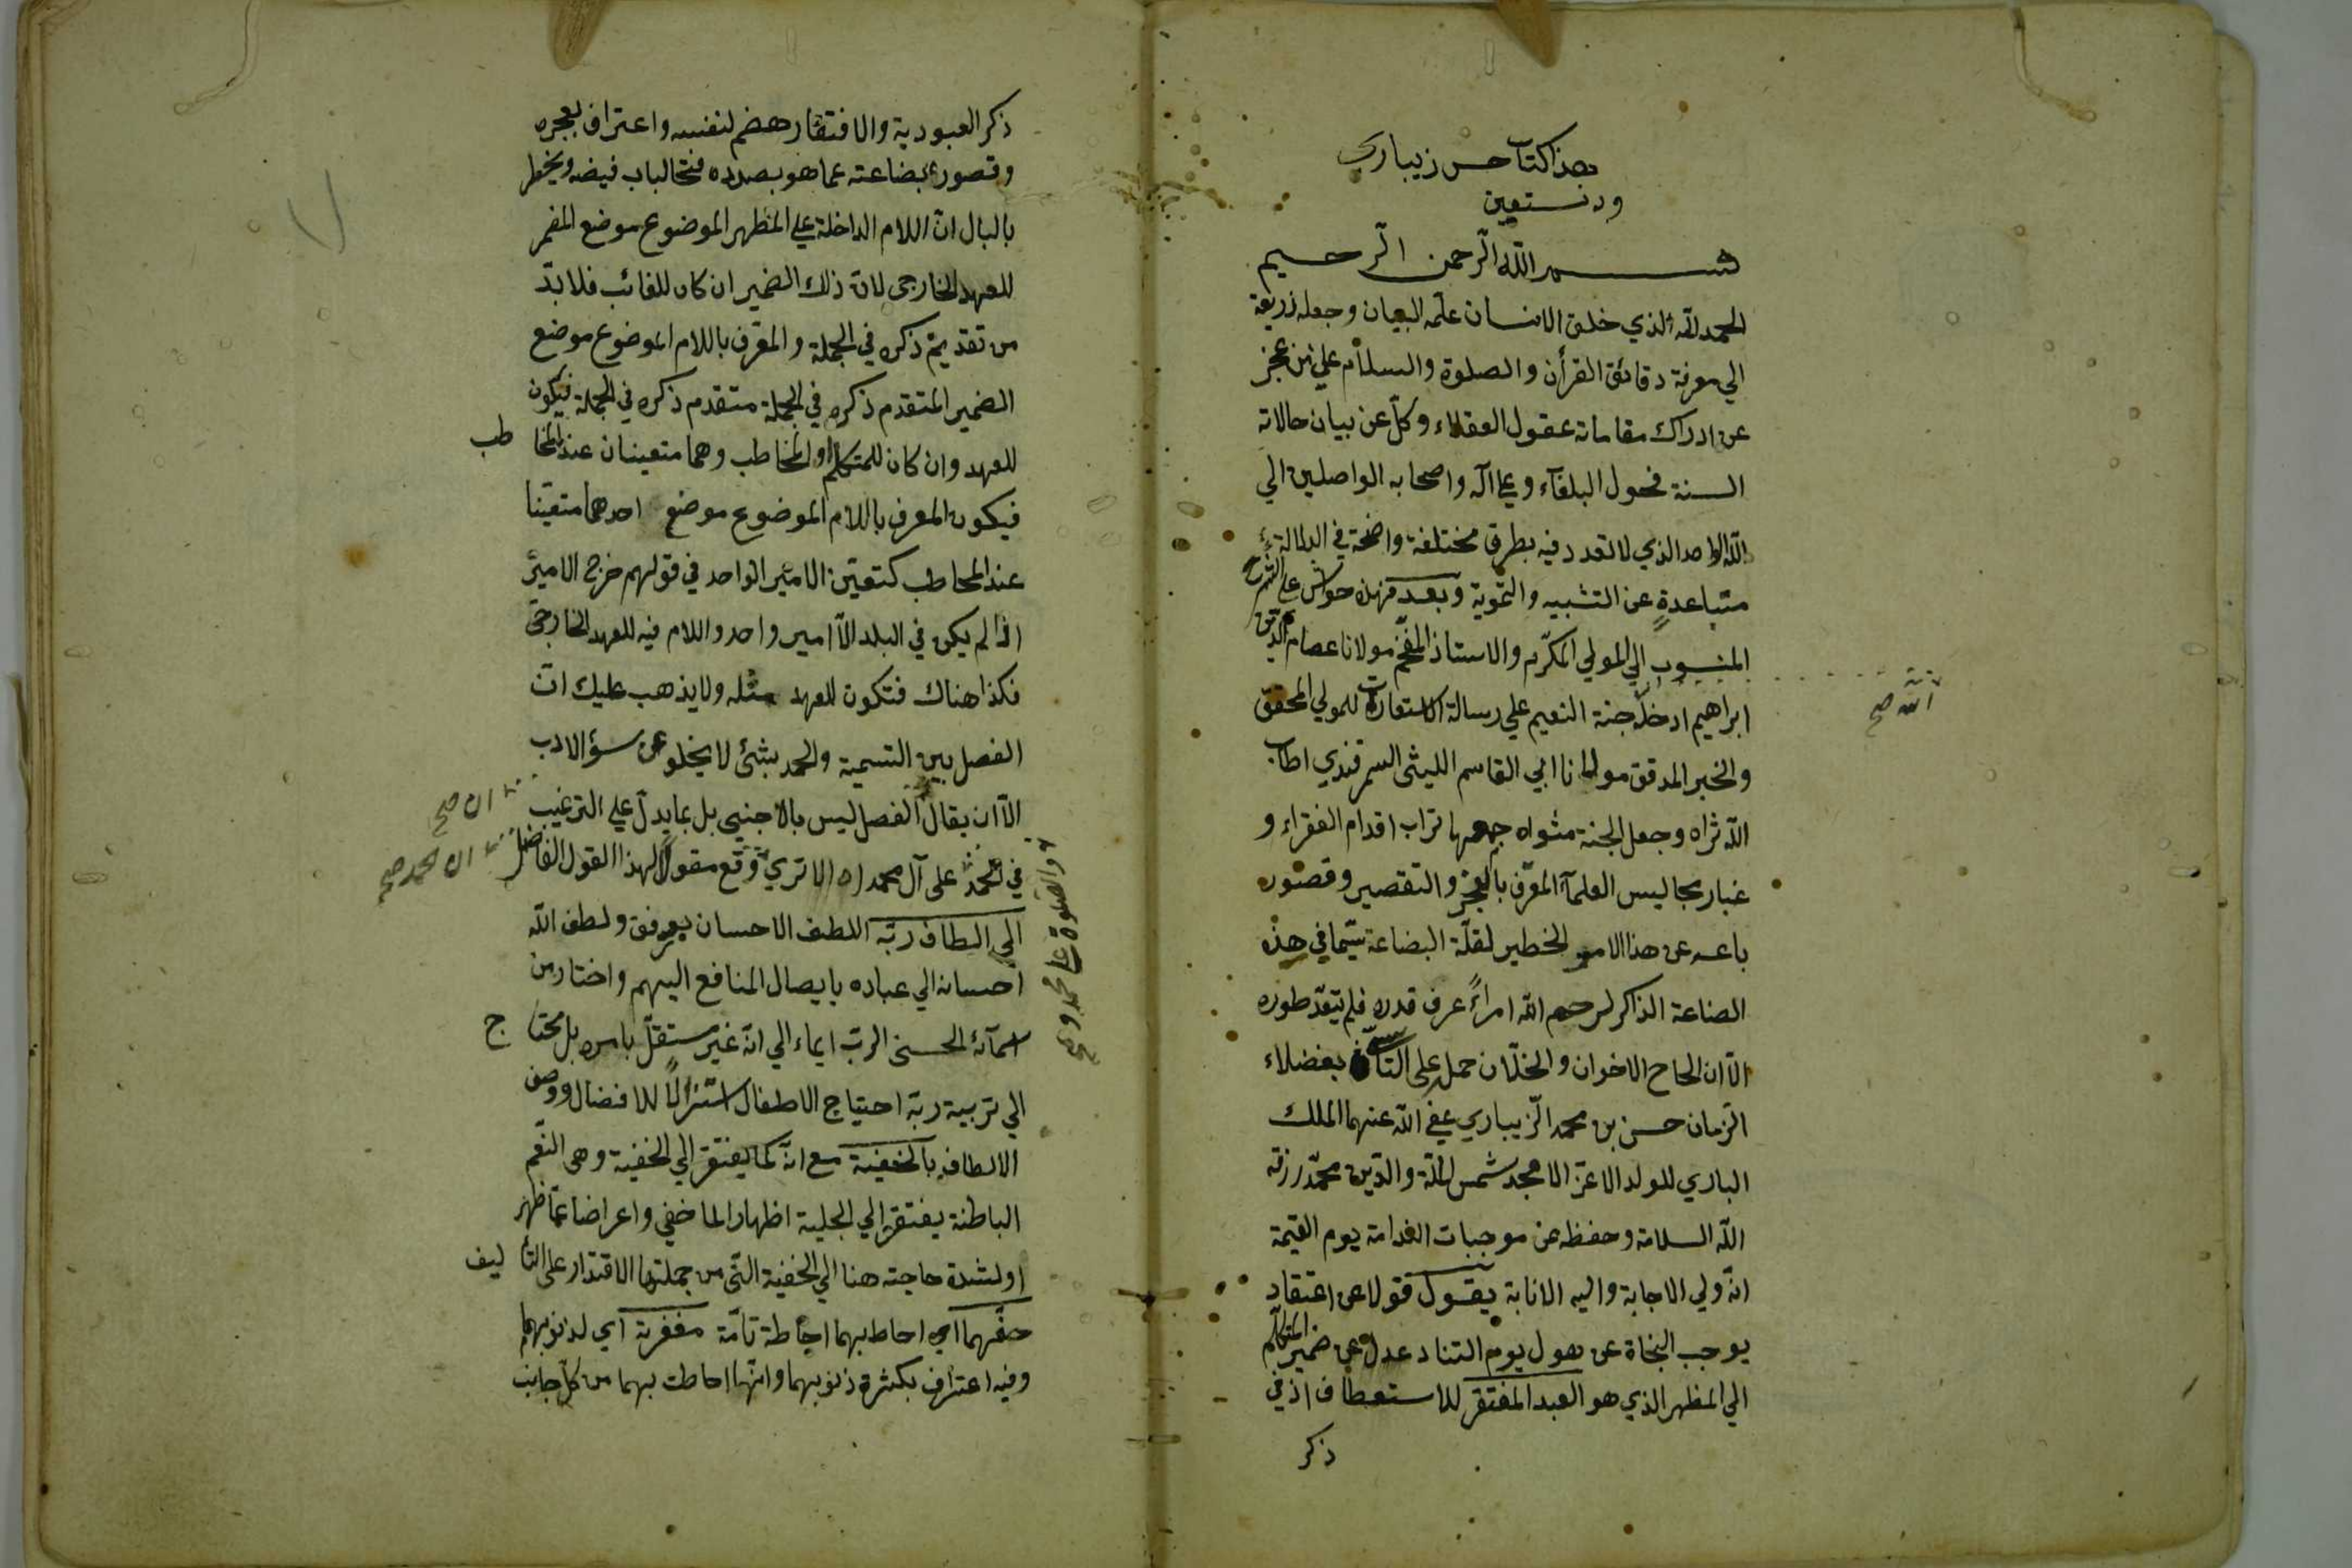 هذا كتاب حسن زيباري
ود نستعين
بسم الله الرحمن الرحيم
الحمد لله الذي خلق الانسان علّمه البيان وجعله ذريعة
الي معرفة دقائق القرأن والصلوة والسلام علي من عجز
عن ادراك مقاماته عقول العقلاء وكلّ عن بيان حالاته
السنة فحول البلغآء وعلي آله واصحابه الواصلين الي
الله الواحد الذي لا تعدد فيه بطرق مختلفة واضحة في الدلالة
متباعدةٍ عن التشبيه والتموية وبعد فهذه حواش علي الشرح
المنسوب الي المولي المكرّم والاستاذ المفخّم مولانا عصام الدين
ابراهيم ادخله جنة النعيم علي رسالة الاستعارات للمولي المحقق
الله صح
والخبر المدقق مولانا ابي القاسم الليثي السمرقندي اطاب
الله ثراه وجعل الجنة مثواه جمعها تراب اقدام الفقراء و
غبار مجاليس العلمآء المعرّف بالعجز والتقصير وقصور
باعه عن هذا الامر الخطير لقلّة البضاعة سيّما في هذه
الصناعة الذاكر لرحم الله امراءً عرف قدره فلم يتعدّ طوره
الّا ان الحاح الاخوان والخلّان حمله علي التأسّي بفضلاء
الزمان حسن بن محمد الزيباري عفي الله عنهما الملك
الباري للولد الاعزّ الامجد شمس الملّة والدّين محمّد رزقه
الله السلامة وحفظه عن موجبات الندامة يوم القيٰمة
انّه ولي الاجابة واليه الانابة يقول قولا عن اعتقاد
يوجب النجاة عن هول يوم التناد عدل عن ضمير المتكلّم
الي المظهر الذي هو العبد المفتقر للاستعطاف اذ في
ذكر
ذكر العبودية والافتقار هضم لنفسه واعتراف بعجزه
وقصور بضاعته عما هو بصدده فتحا لباب فيضه ويخطر
بالبال انّ اللام الداخلة علي المظهر الموضوع موضع المضمر
للعهد الخارجي لانّ ذلك الضمير ان كان للغائب فلا بدّ
من تقديم ذكره في الجملة والمعرّف باللام الموضوع موضع
الضمير المتقدم ذكره في الجملة متقدم ذكره في الجملة فيكون
للعهد وان كان للمتكلّم او للمخاطب وهما متعينان عند المخاطب
فيكون المعرف باللام الموضوع موضع احدهما متعيّنا
عند المخاطب كتعيّن الامير الواحد في قولهم خرج الامير
اذا لم يكن في البلد الّا امير واحد واللام فيه للعهد الخارجي
فكذا هناك فتكون للعهد مثله ولا يذهب عليك انّ
الفصل بين التسمية والحمد بشئ لا يخلو عن سؤ الادب
الّا ان يقال الفصل ليس بالاجنبي بل بما يدلّ علي الترغيب
ان صح
في الحمد على آل محمد اه الا تري وقع مقولا لهذا القول الفاضل
ان الحمد صح
والصلوة علي محمد و صح
الي الطاف ربّه اللطف الاحسان يعرفق ولطف الله
احسانه الي عباده بايصال المنافع اليهم واختار من
اسمآئه الحسني الربّ ايماء الي انّه غير مستقلّ بامره بل محتاج
الي تربية ربّه احتياج الاطفال استنزالًا للافضال ووصف
الالطاف بالخفية مع انّه كما يفتقر الي الخفية وهي النّعم
الباطنة يفتقر الي الجلية اظهارا لما خفي واعراضا عمّا ظهر
او لشدة حاجته هنا الي الخفية الّتي من جملتها الاقتدار علي التأليف
حفّهما اي احاط بهما احاطة تامّة مغفرته اي لذنوبهما
وفيه اعتراف بكثرة ذنوبهما وانّها احاطت بهما من كلّ جانب